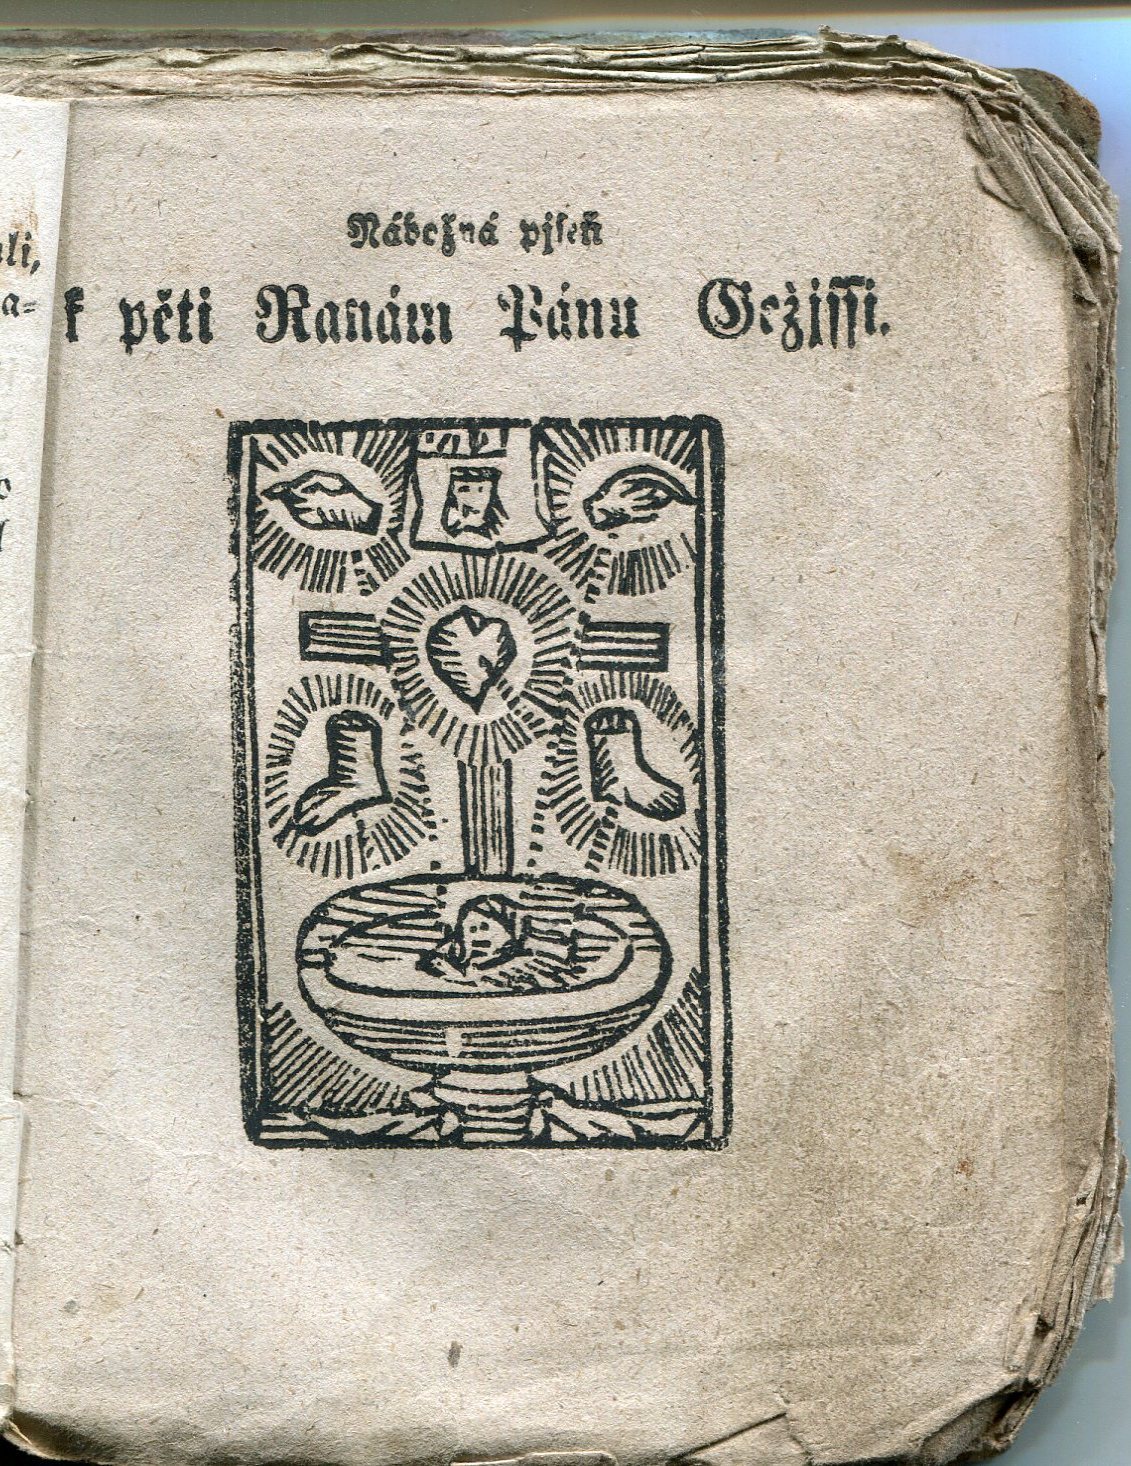 Nábožná pjseň
k pěti Ranám Pánu Gežjssi.